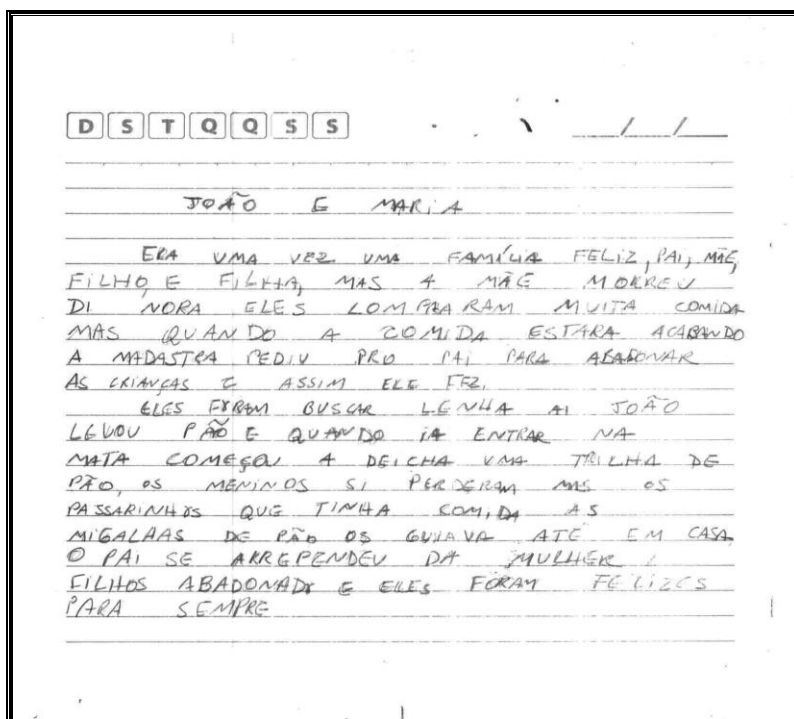 D S T Q Q S S / /
JOÃO E MARIA
ERA UMA VEZ UMA FAMÍLIA FELIZ, PAI, MÃE,
FILHO, E FILHA, MAS A MÃE MORREU
DI NORA ELES COMPRARAM MUITA COMIDA
MAS QUANDO A COMIDA ESTARA ACABANDO
A MADASTRA PEDIU PRO PAI PARA ABADONAR
AS CRIANÇAS E ASSIM ELE FEZ.
ELES FORAM BUSCAR LENHA AI JOÃO
LEVOU PÃO E QUANDO IA ENTRAR NA
MATA COMEÇOU A DEICHA UMA TRILHA DE
PÃO, OS MENINOS SI PERDERAM MAS OS
PASSARINHOS QUE TINHA COMIDA AS
MIGALAAS DE PÃO OS GUIAVA ATÉ EM CASA
O PAI SE ARREPENDEU DA MULHER
FILHOS ABADONADO E ELES FORAM FELIZES
PARA SEMPRE